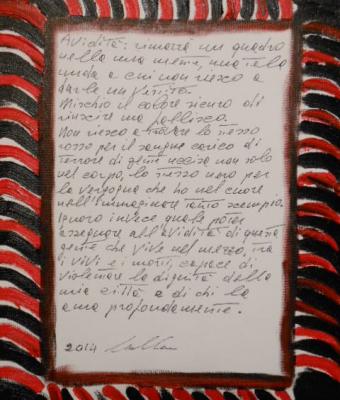 Avidità: rimarrà un quadro
nella mia mente, una tela
nuda a cui non riesco a
darle un Verità.
Mischio il colore sicuro di
riuscire ma fallisco.
Non riesco a trovare lo stesso
rosso per il sangue carico di
terrore di gente uccisa non solo
nel corpo, lo stesso nero per
la vergogna che ho nel cuore
nell'immaginare tanto scempio.
Ignoro invece quale poter
assegnare all'avidità di questa
gente che vive nel mezzo, tra
i vivi e i morti, capace di
violentare la dignità della
mia città e di chi la
ama profondamente.
2014